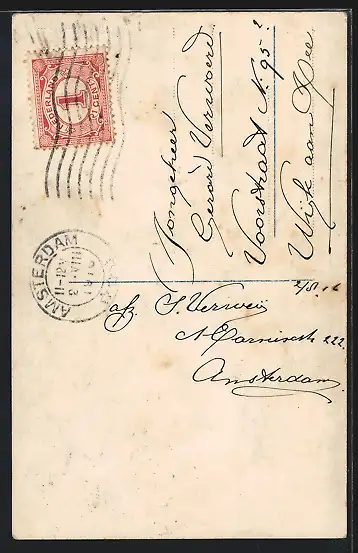 NEDERLAND
1
CENT
AMSTERDAM
11-12V
VIII
13
Jongeheer
Gerard Verweerd
Voorstraat N. 95
Wijk aan Zee
2/8
afz. J. Verweij
Amsterdam